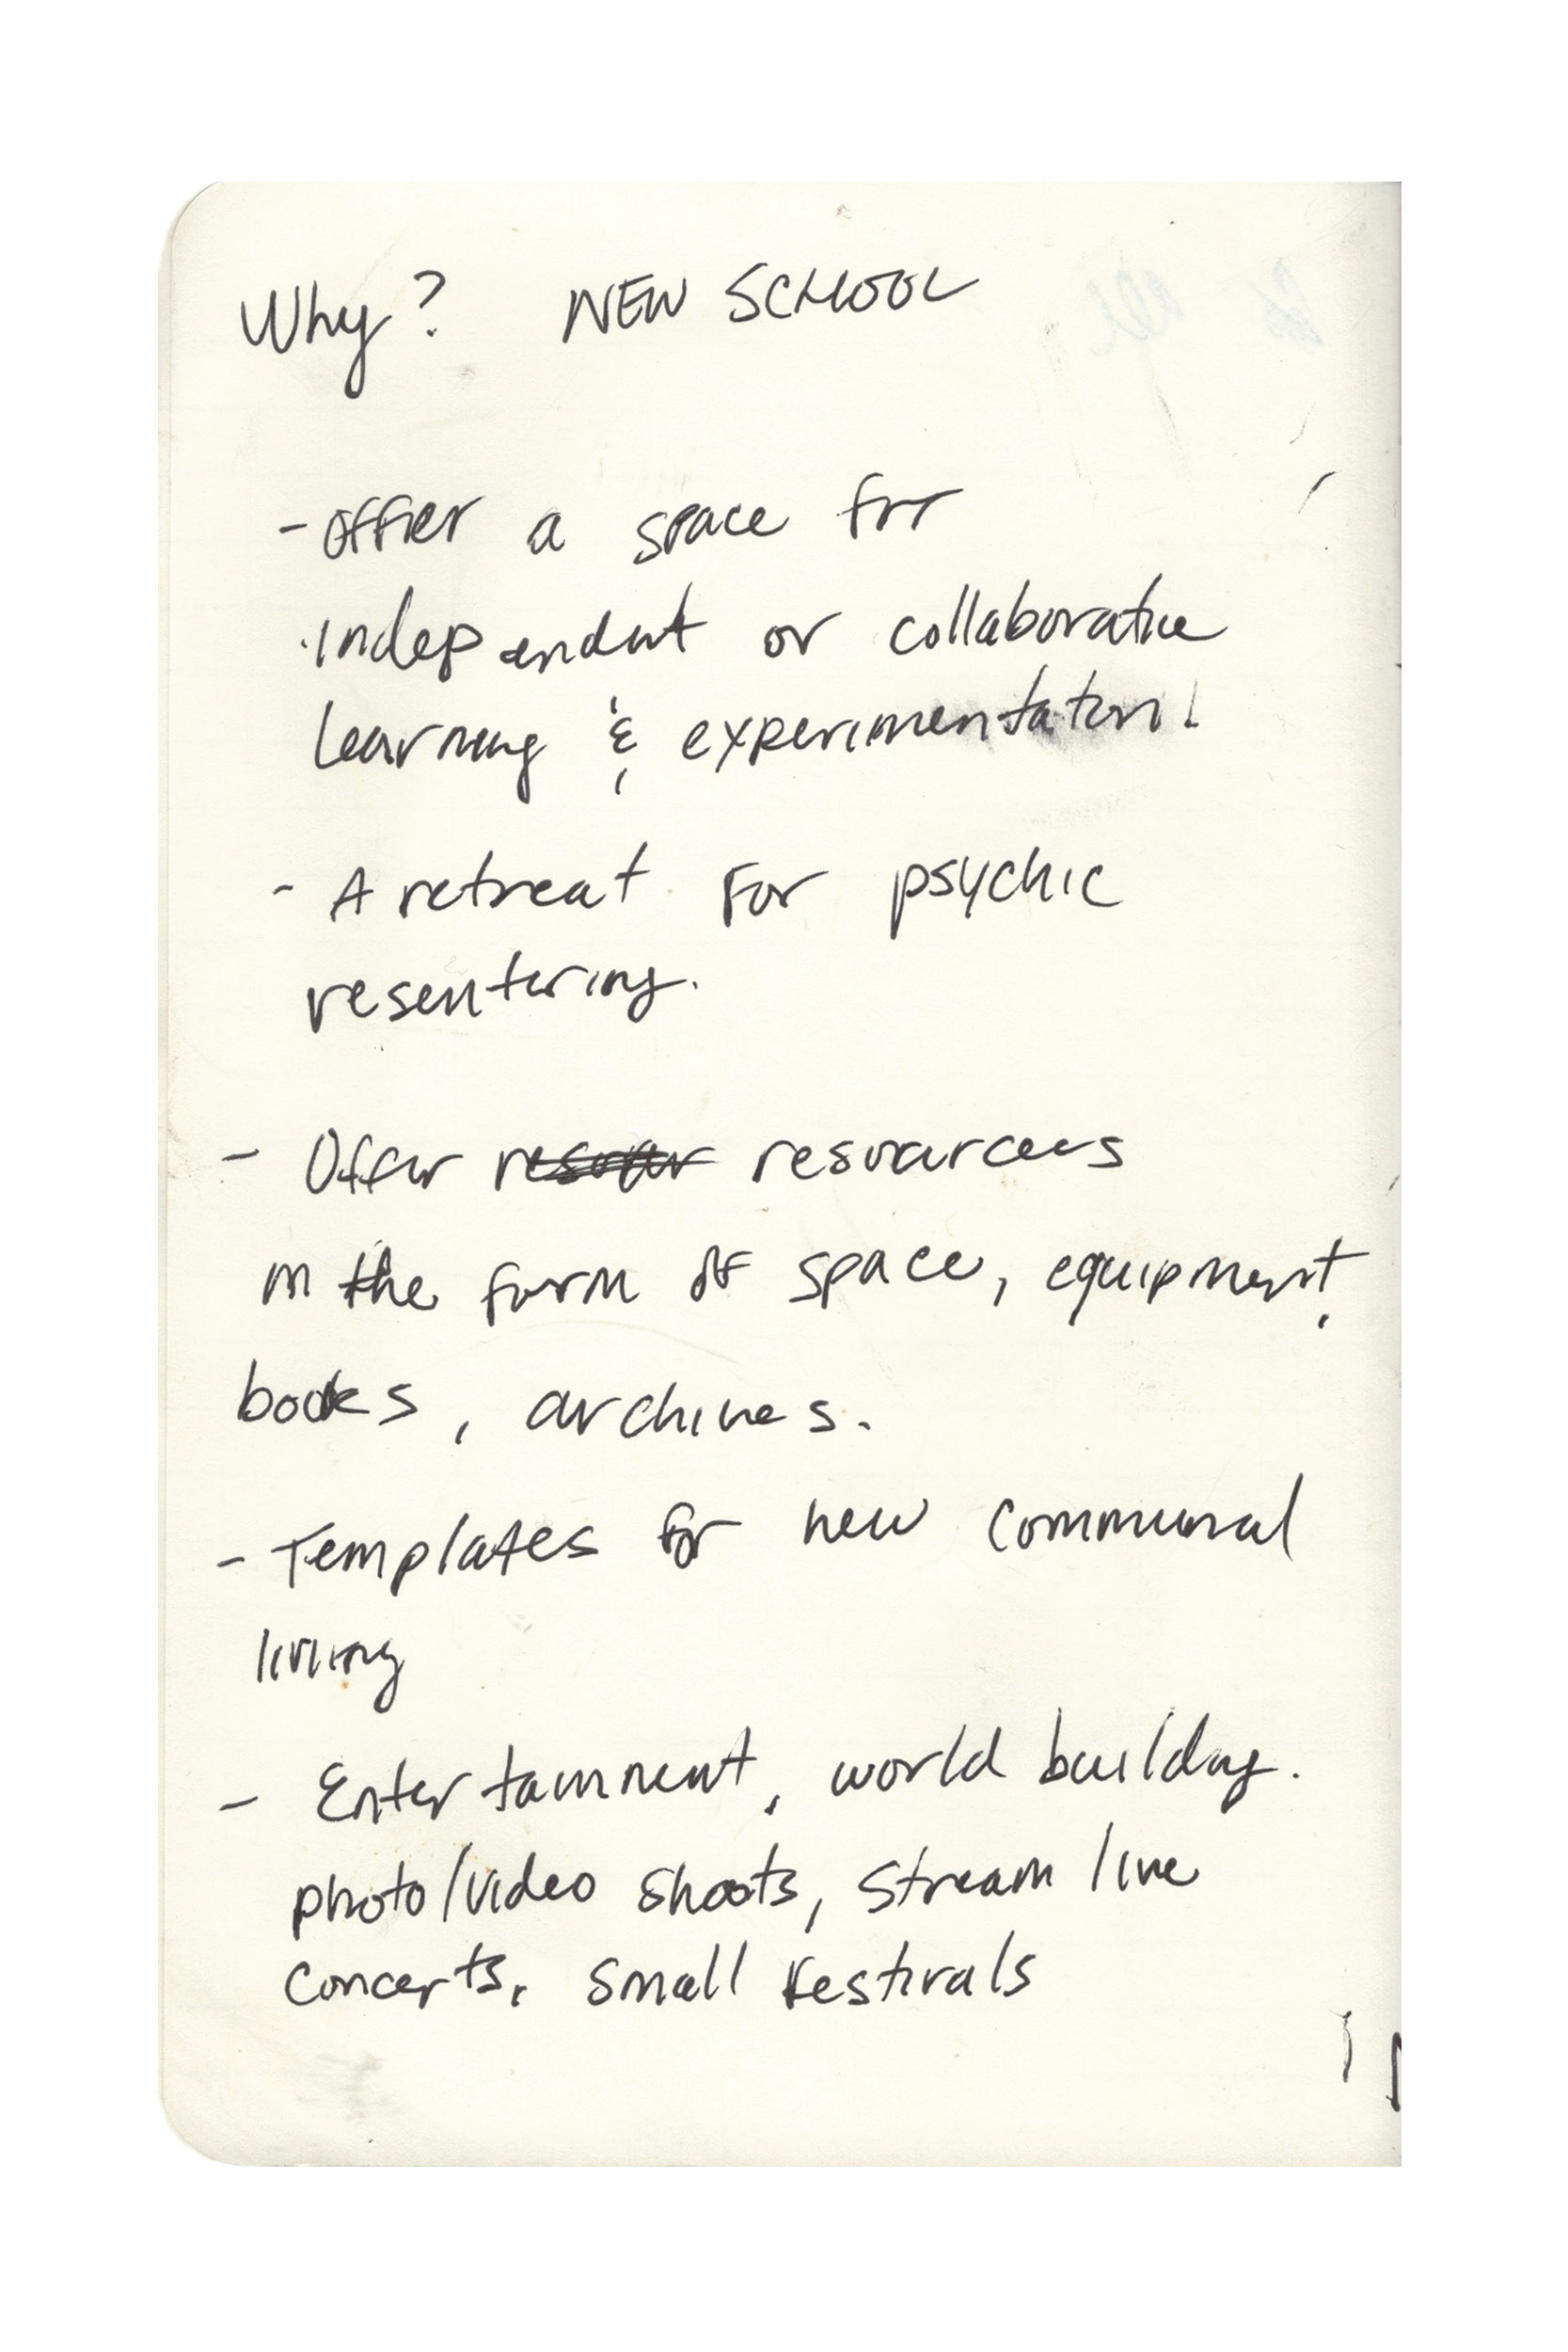 Why? NEW SCHOOL
- Offer a space for
independent or collaborative
learning & experimentation!
- A retreat for psychic
resentering.
- Offer resources
in the form of space, equipment,
books, archives.
- Templates for new communal
living
- Entertainment, world building.
photo/video shoots, stream live
concerts, small festivals